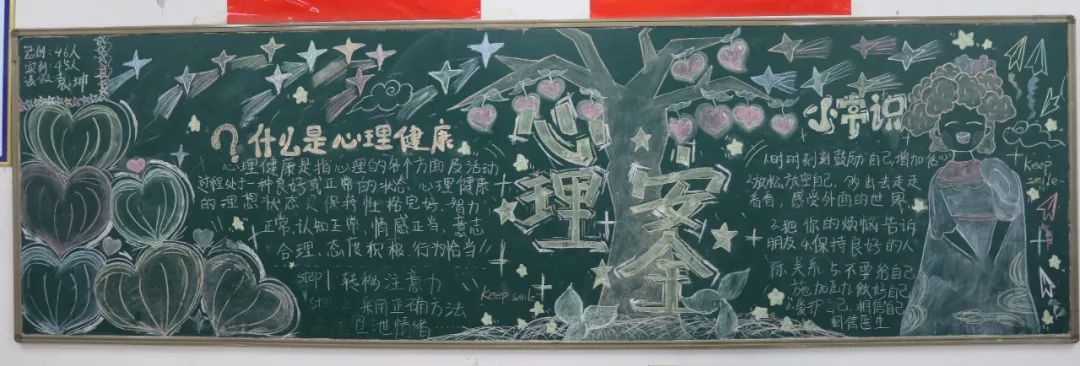 总例:46人
实到:45人
袁坤
?什么是心理健康
心理健康是指心理的各个方面及活动
过程处于一种良好或正常的状态。心理健康
的理想状态是保持性格完好、智力
正常、认知正常、情感正当、意志
合理、态度积极、行为恰当
step1 转移注意力
采用正确方法
宣泄情绪
keep smile
心理
安全
小常识
1.时时刻刻鼓励自己增加信心
2.放松放空自己,多出去走走
看看,感受外面的世界
3.把你的烦恼告诉
朋友 4.保持良好的人
际关系 5.不要给自己
施加压力做好自己
6.爱护自己,相信自己
相信医生
Keep
smile~